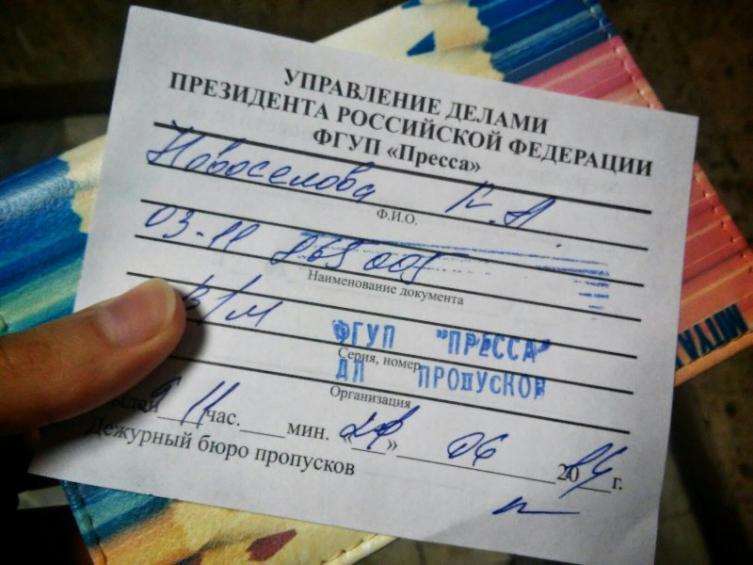 УПРАВЛЕНИЕ ДЕЛАМИ
ПРЕЗИДЕНТА РОССИЙСКОЙ ФЕДЕРАЦИИ
ФГУП «Пресса»
Новоселова К. А
Ф.И.О.
03-11
Наименование документа
ФГУП "ПРЕССА"
Серия, номер
ДЛ ПРОПУСКОВ
Организация
11 час. мин. « » 06 20 г.
Дежурный бюро пропусков
MITYA